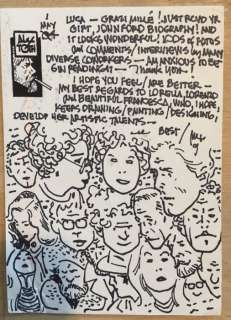 1 MAY
ALEX TOTH
LUCA — GRAZI MILLE! JUST RCVD YR
GIFT, JOHN FORD BIOGRAPHY! AND
IT LOOKS WONDERFUL! LODS O' FOTOS
COMMENTS/INTERVIEWS BY MANY
DIVERSE COWORKERS — AM ANXIOUS TO BE-
GIN READING IT — THANK YOU!
I HOPE YOU FEEL/ARE BETTER —
MY BEST REGARDS TO LORELLA, LORENZO
BEAUTIFUL FRANCESCA, WHO, I HOPE,
KEEPS DRAWING/PAINTING/DESIGNING,
DEVELOP HER ARTISTIC TALENTS —
BEST